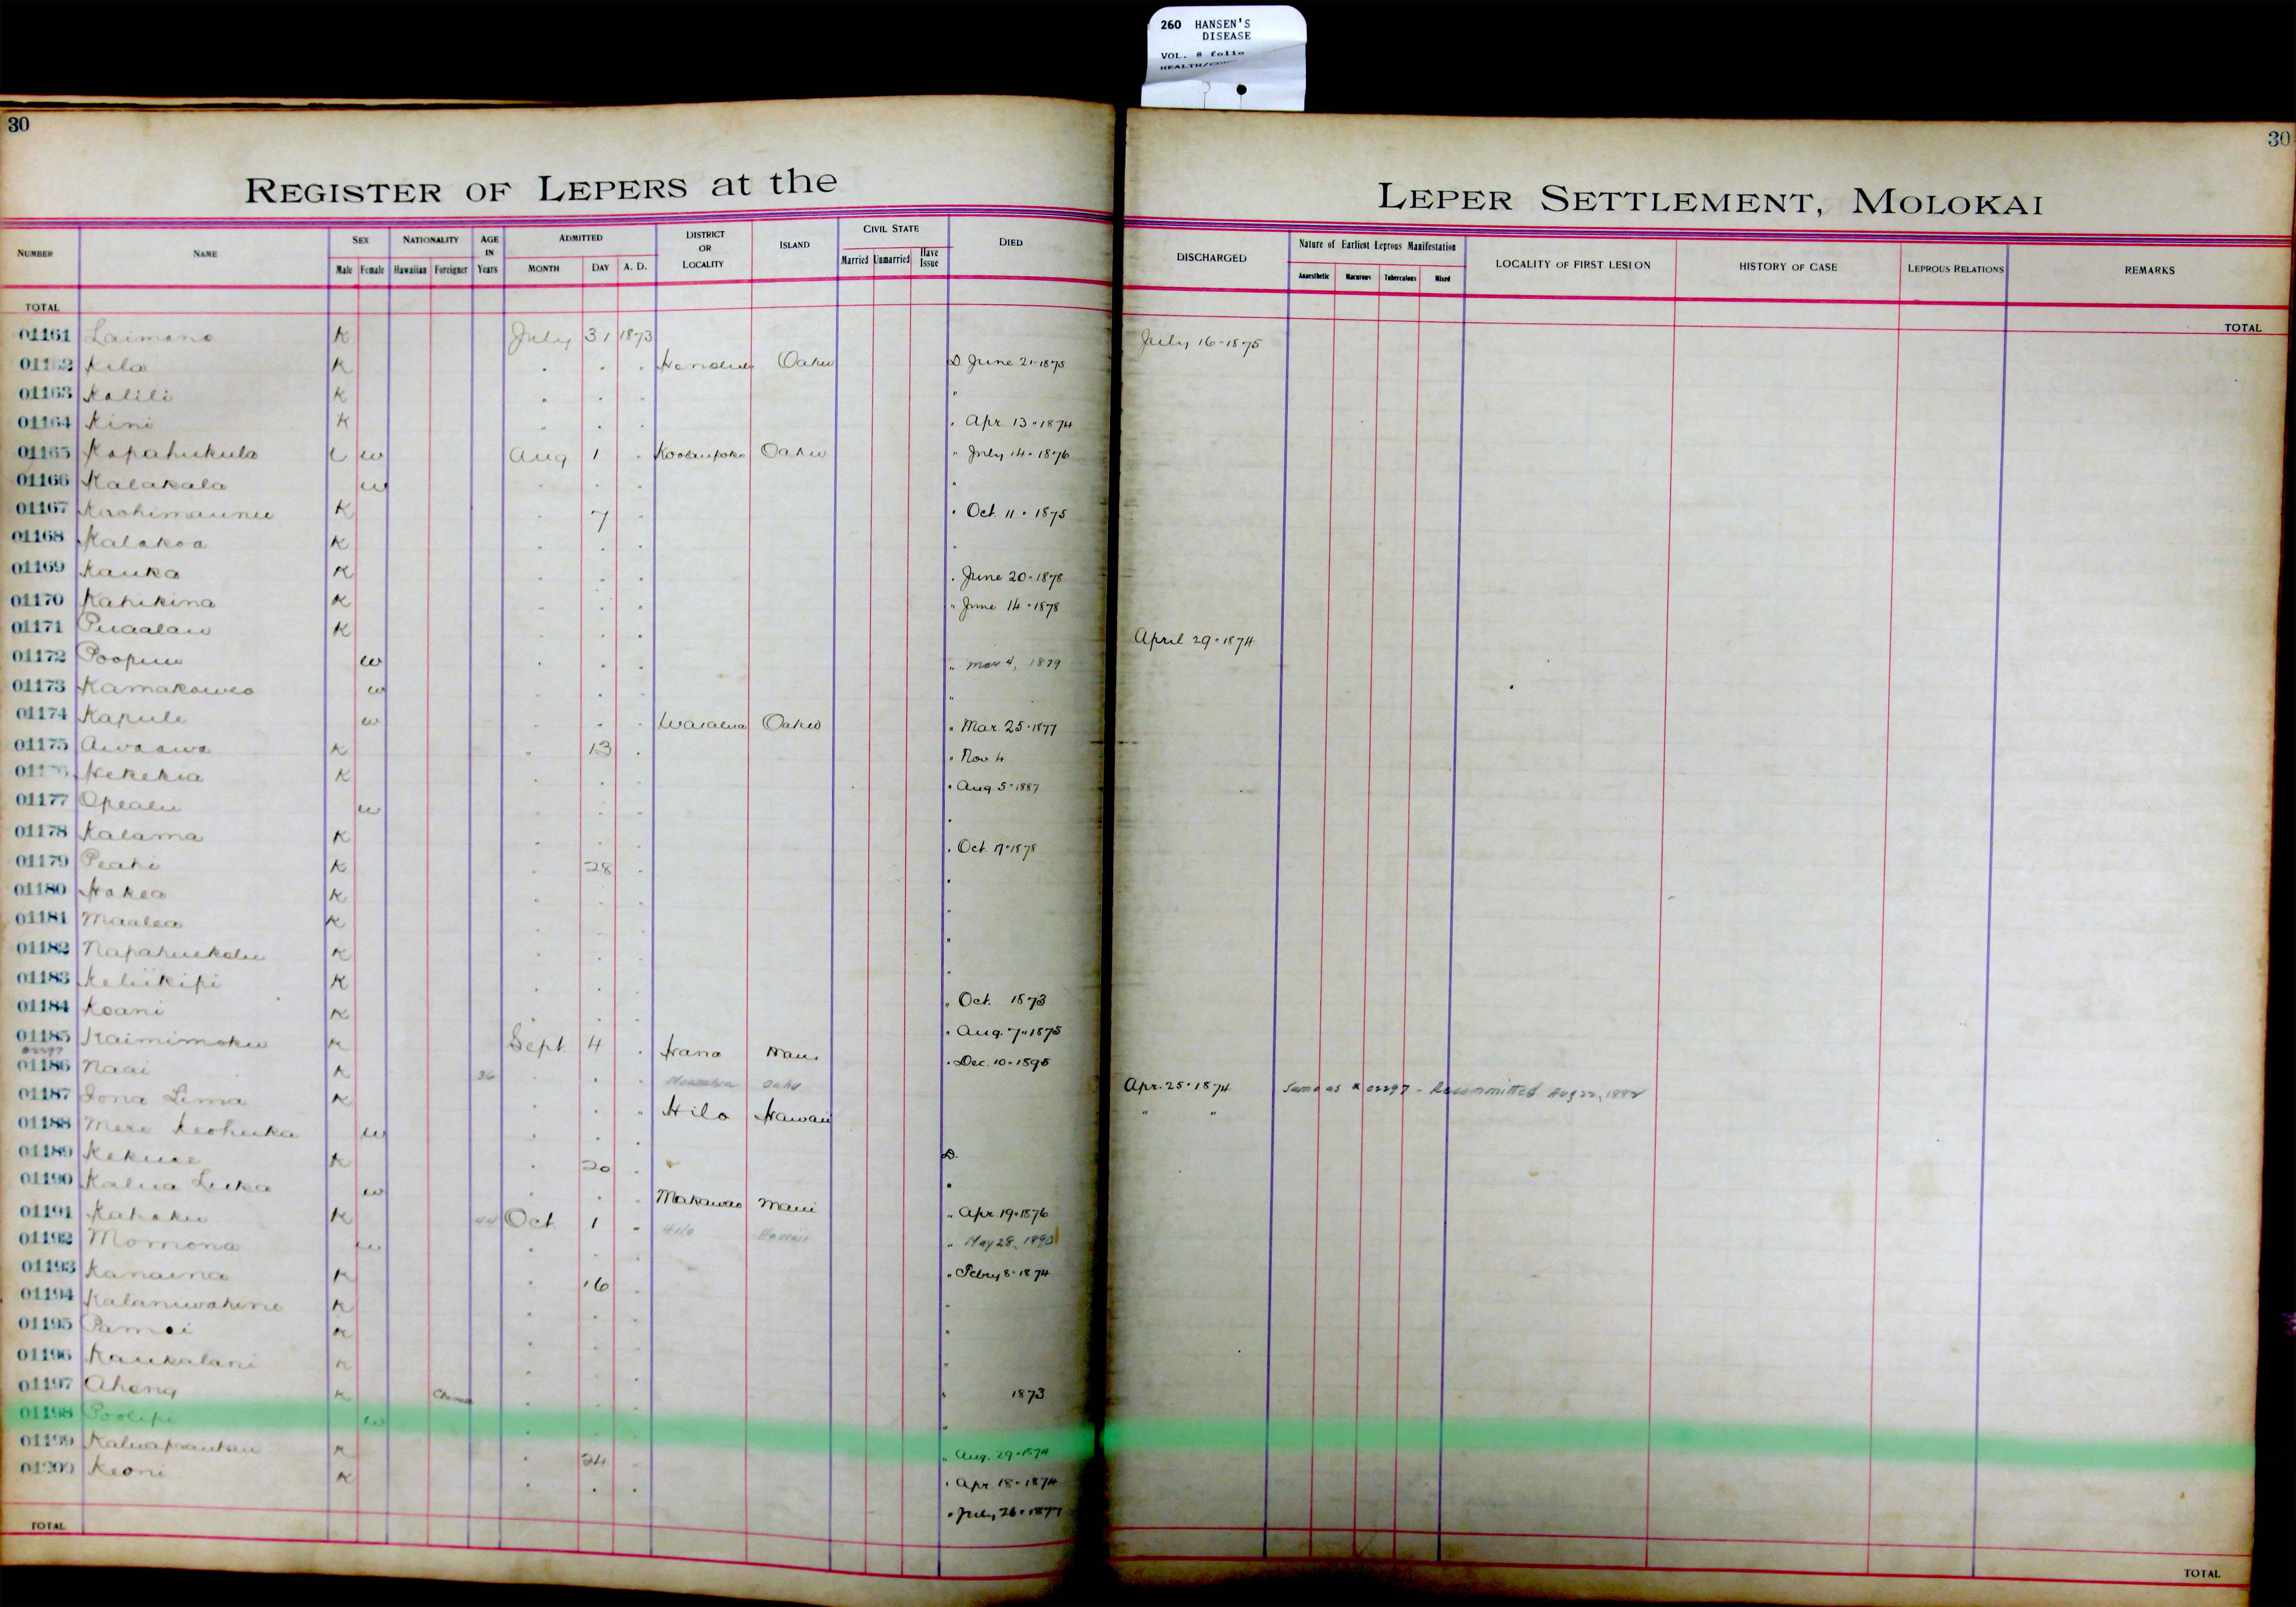 260 HANSEN'S
DISEASE
VOL. 8 folio
30
30
REGISTER OF LEPERS at the
LEPER SETTLEMENT, MOLOKAI
NUMBER NAME SEX NATIONALITY AGE IN Years ADMITTED DISTRICT OR LOCALITY ISLAND CIVIL STATE DIED
Male Female Hawaiian Foreigner MONTH DAY A. D. Married Unmarried Have Issue
DISCHARGED Nature of Earliest Leprous Manifestation LOCALITY OF FIRST LESION HISTORY OF CASE LEPROUS RELATIONS REMARKS
Anaesthetic Macurous Tuberculous Mixed
TOTAL
TOTAL
01161 Laimana K July 31 1873 July 16-1875
01162 Kila K " " " Honolulu Oahu D. June 21-1875
01163 Kalili K " " " "
01164 Kini K " " " " Apr. 13-1874
01165 Kapahukula w Aug 1 " Koolaupoko Oahu " July 14-1876
01166 Kalakala w " " " "
01167 K " 7 " " Oct. 11-1875
01168 Kalakoa K " " " "
01169 Kauka K " " " " June 20-1878
01170 Kahikina K " " " " June 14-1878
01171 Puaalau K " " " April 29-1874
01172 w " " " " Mar 4, 1879
01173 w " " " "
01174 Kapule w " " " Waialua Oahu " Mar. 25-1877
01175 Awaawa K " 13 " " Nov. 4
Kekekia K " " " " Aug 5-1887
01177 Opealu w " " " "
01178 Kalama K " " " " Oct. 17-1878
01179 Peahi K " 28 " "
01180 Hakea K " " " "
01181 Maalea K " " " "
01182 Napahuekolu K " " " "
01183 Keliikipi K " " " " Oct. 1873
01184 Koani K " " " " Aug. 7-1875
01185 Kaimimoku K Sept. 4 " Hana Maui " Dec. 10-1895
01186 Naai K 36 " " " Oahu Apr. 25-1874 Same as # 02297 - Recommitted Aug 22, 1882
01187 Iona Lima K " " " Hilo Hawaii " "
01188 Mere Keohuka w " " " D.
01189 Kekuae K " 20 " "
01190 Kalua Luka w " " " Makawao Maui " Apr. 19-1876
01191 Kahaku K 44 Oct 1 " Hilo Hawaii " May 28, 1890
01192 Momona w " " " " Febry 8-1874
01193 Kanaina K " 16 " "
01194 Kalaniwahine K " " " "
01195 K " " " "
01196 Kaukalani K " " " " 1873
01197 Aheng K " " " "
01198 Poolipi w " " " " Aug. 29-1874
01199 K " 24 " " Apr. 18-1874
01200 Keoni K " " " " July 26-1877
TOTAL
TOTAL